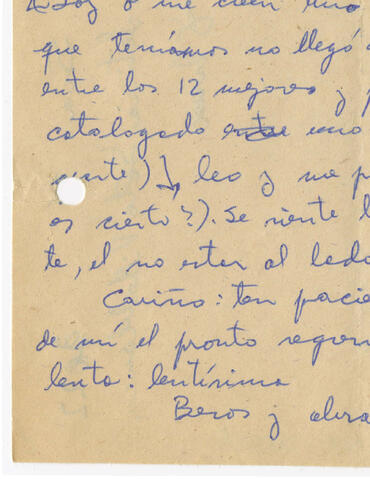 Soy o me creen uno
que teníamos no llegó
entre los 12 mejores y
catalogado entre uno
leo y me
es cierto?). Se siente
te, el no estar al lado
Cariño: ten pacie
de mí el pronto regre
lenta: lentísima
Besos y abra